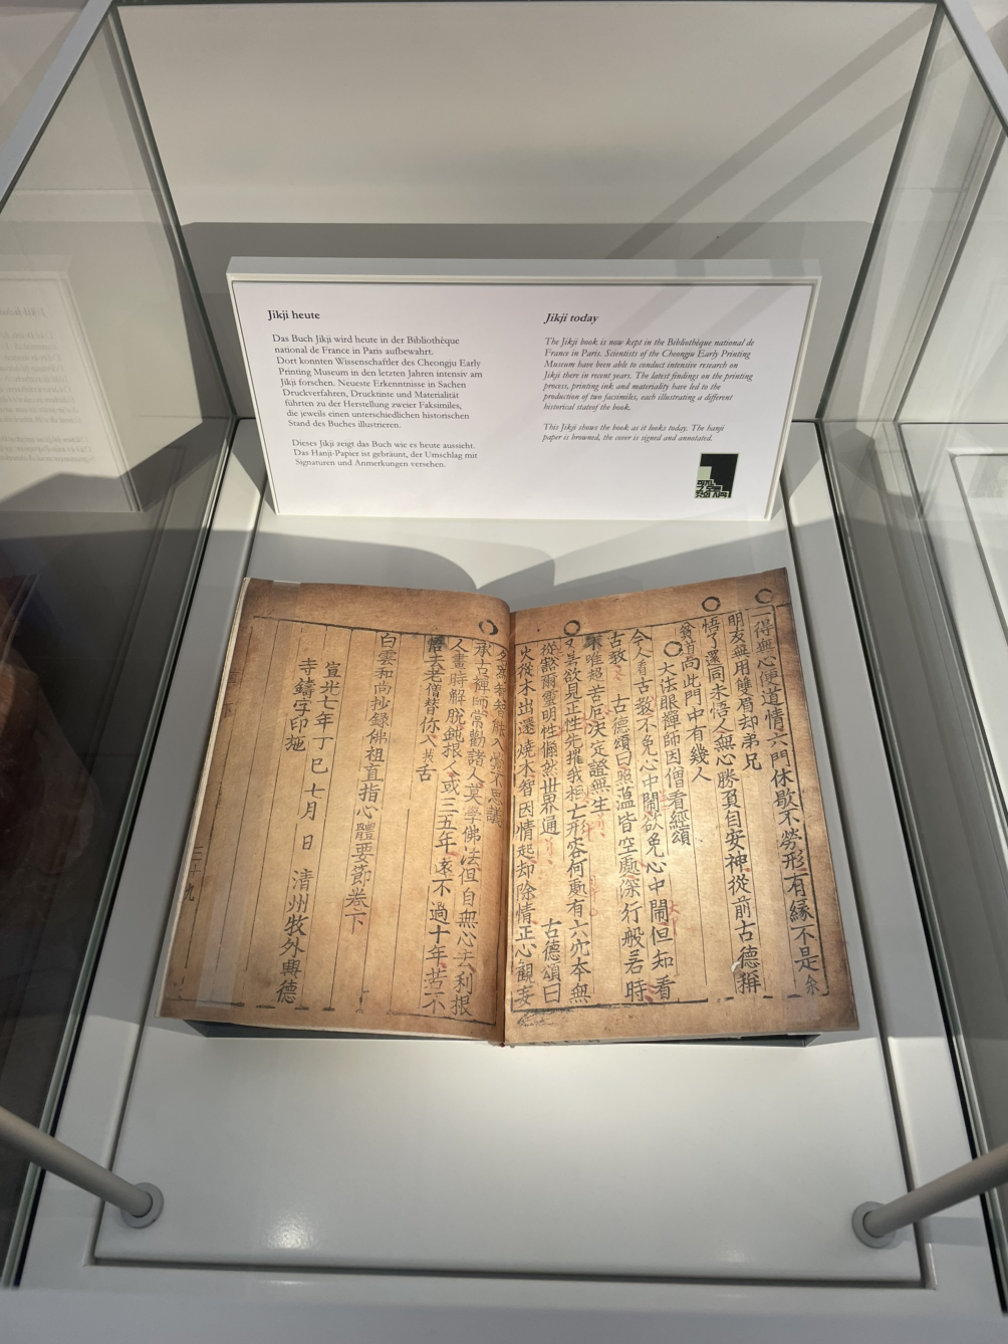 Jikji heute
Das Buch Jikji wird heute in der Bibliothèque
national de France in Paris aufbewahrt.
Dort konnten Wissenschaftler des Cheongju Early
Printing Museum in den letzten Jahren intensiv am
Jikji forschen. Neueste Erkenntnisse in Sachen
Druckverfahren, Drucktinte und Materialität
führten zu der Herstellung zweier Faksimiles,
die jeweils einen unterschiedlichen historischen
Stand des Buches illustrieren.
Dieses Jikji zeigt das Buch wie es heute aussieht.
Das Hanji-Papier ist gebräunt, der Umschlag mit
Signaturen und Anmerkungen versehen.
Jikji today
The Jikji book is now kept in the Bibliothèque national de
France in Paris. Scientists of the Cheongju Early Printing
Museum have been able to conduct intensive research on
Jikji there in recent years. The latest findings on the printing
process, printing ink and materiality have led to the
production of two facsimiles, each illustrating a different
historical stateof the book.
This Jikji shows the book as it looks today. The hanji
paper is browned, the cover is signed and annotated.
一得無心便道情六門休歇不勞形有緣不是余
明友無用雙眉却弟兄
悟了還同未悟人無心勝負自安神從前古德稱
貧道向此門中有幾人
大法眼禪師因僧看經頌
今人看古教不免心中閙欲免心中閙但知看
古教 古德頌曰照蘊皆空處深行般若時
唯超苦厄決定證無生
欲見正性先摧我相亡形容何處有六穴本無
從豁爾靈明性儼然世界通 古德頌曰
火從木出還燒木智因情起却除情正心觀妄
不思議
承古禪師常勸諸人莫學佛法但自無心去利根
人晝時解脫鈍根人或三五年遠不過十年若不
悟去老僧替你入拔舌
白雲和尚抄錄佛祖直指心體要節卷下
宣光七年丁巳七月 日 清州牧外興德
寺鑄字印施